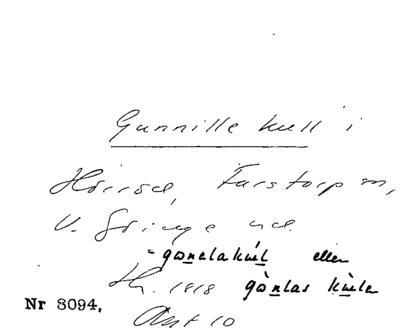 Gunnille kull i
Hörröd, Farstorp sn,
V. Göinge hd.
gωnelakul eller
Hr. 1818 gωnlas kule
Nr 8094. Ant 10